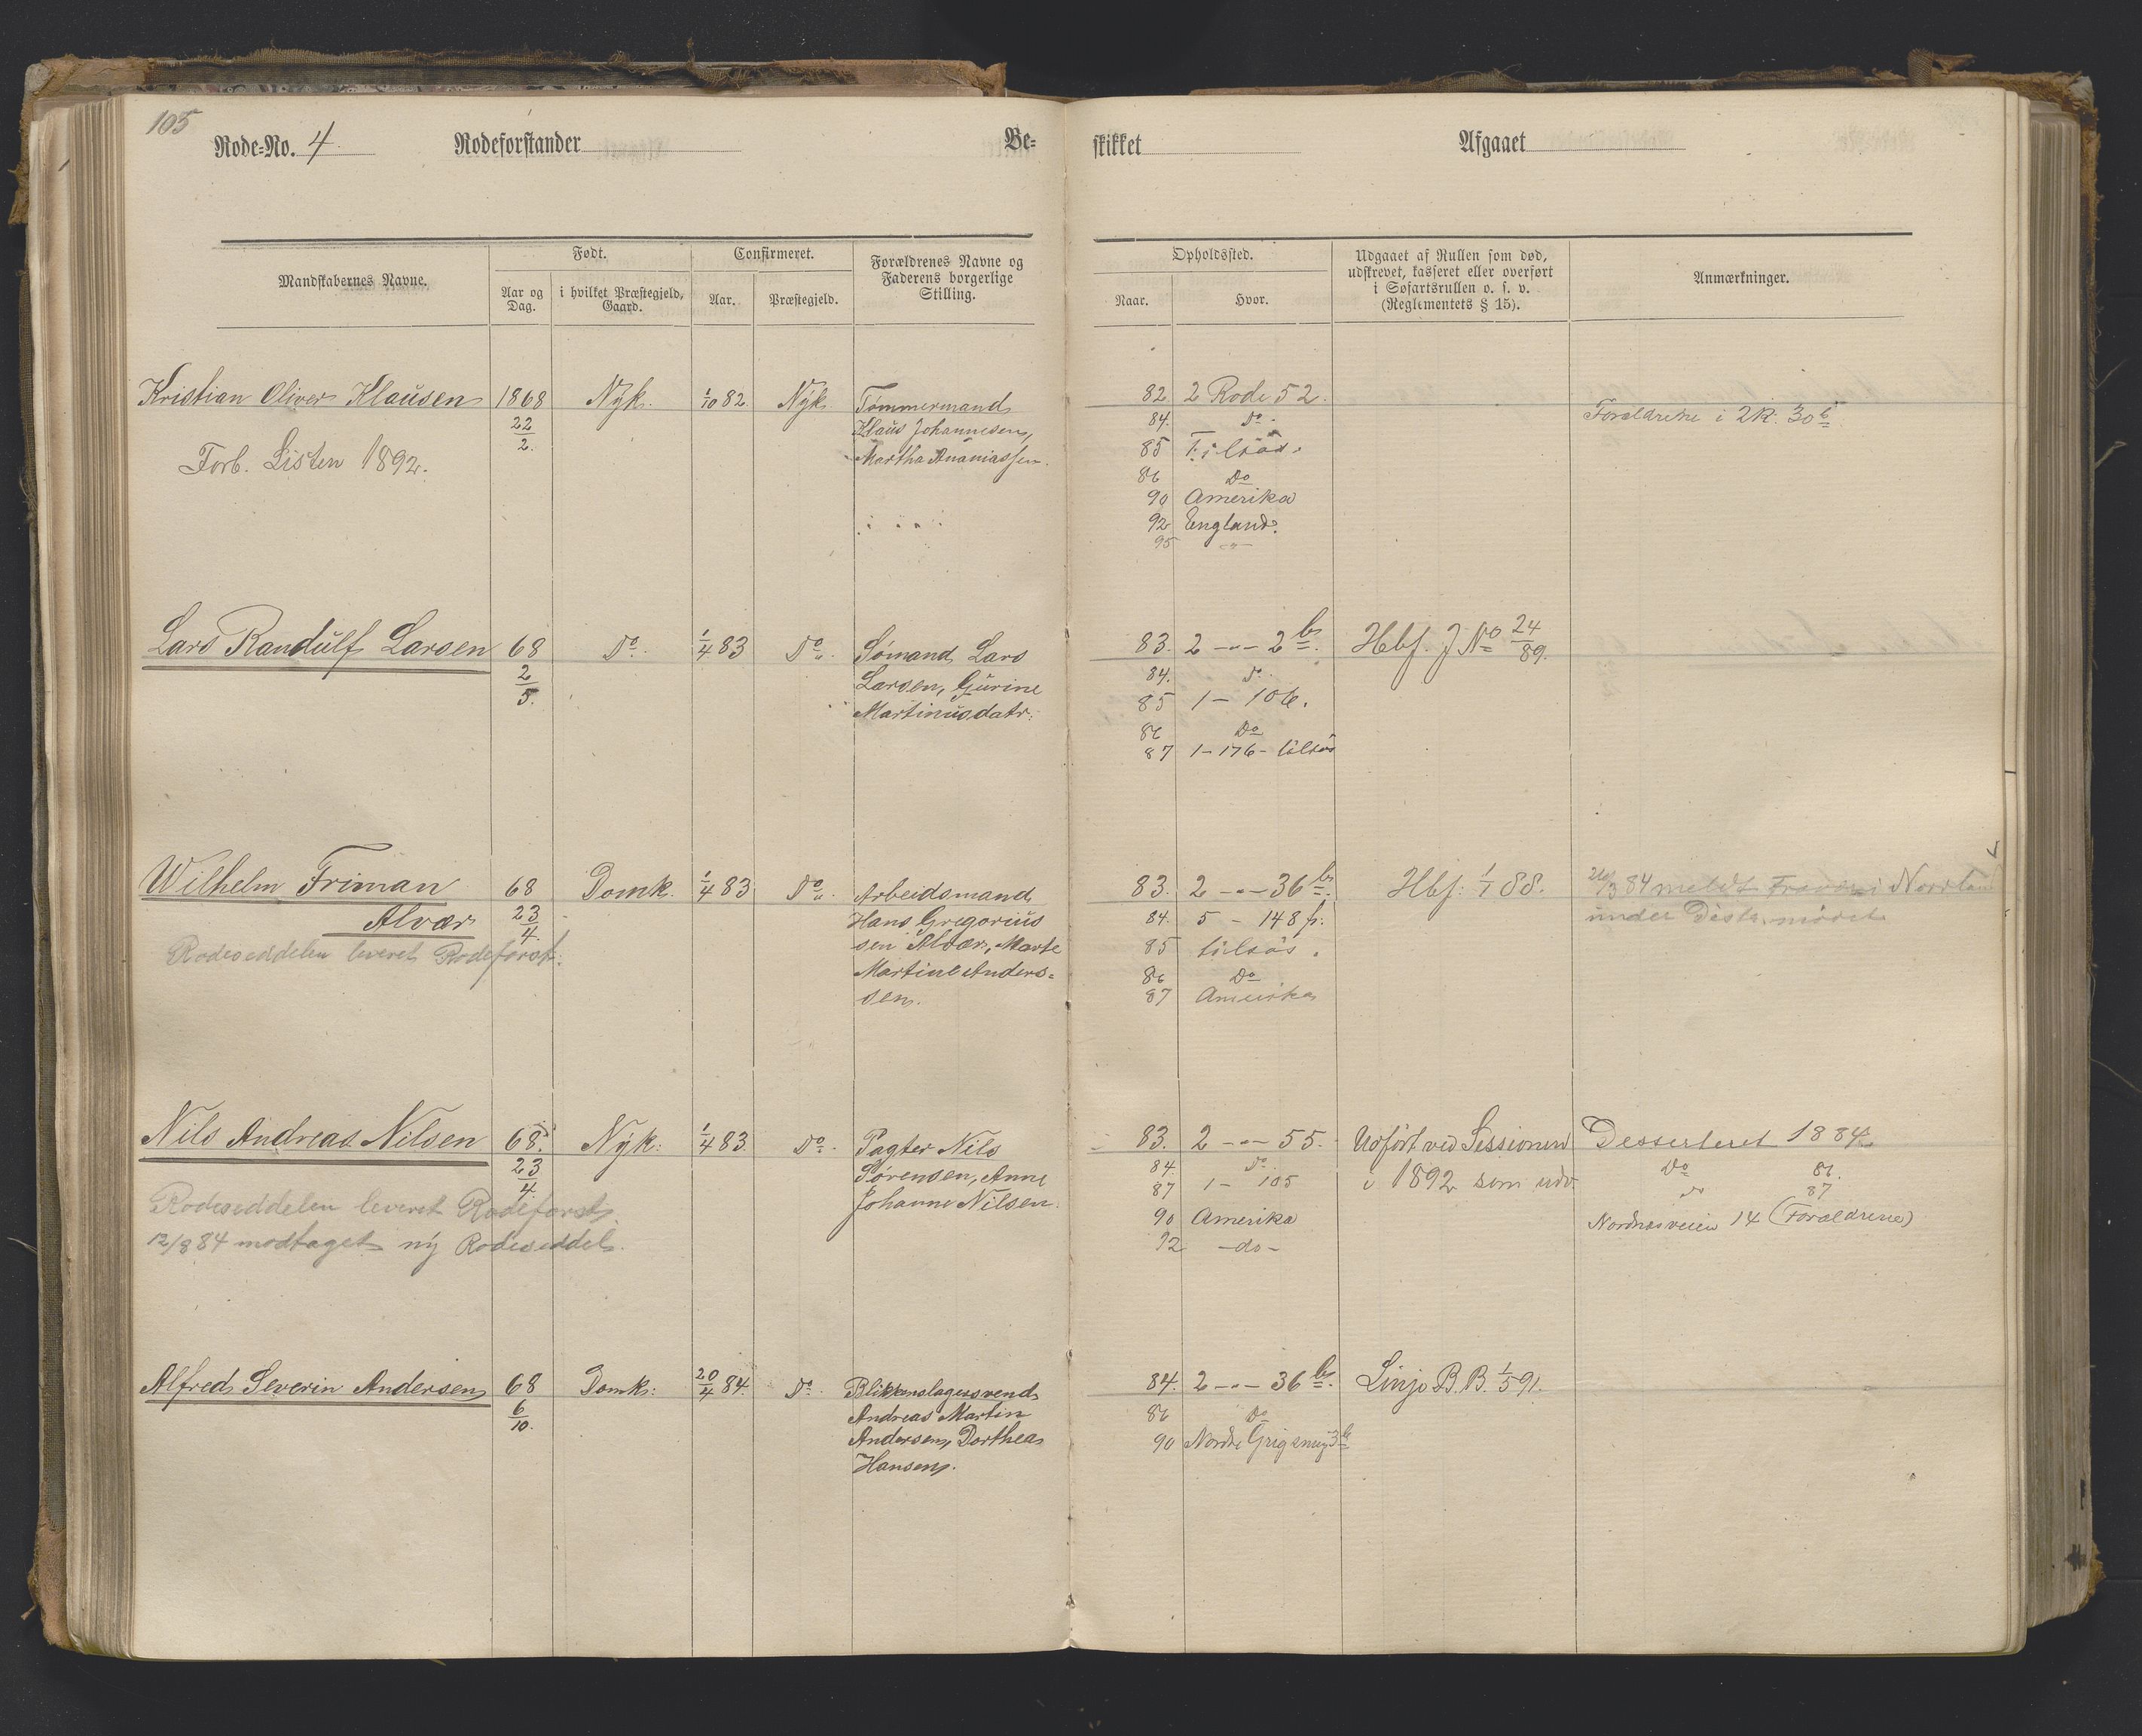 105
Rode-No. 4 Rodeforstander Be-
skikket Afgaaet
Mandskabernes Navne.
Født.
Aar og Dag.
i hvilket Præstegjeld, Gaard.
Confirmeret.
Aar.
Præstegjeld.
Forældrenes Navne og
Faderens borgerlige
Stilling.
Opholdssted.
Naar.
Hvor.
Udgaaet af Rullen som død,
udskrevet, kasseret eller overført
i Søfartsrullen o. s. v.
(Reglementets § 15).
Anmærkninger.
Kristian Oliver Klausen 1868 Nyk. 1/10 82. Nyk.
22/2.
Forb. Listen 1892.
Tömmermand
Klaus Johannesen,
Martha Ananiassen.
82 2 Rode 52.
84. do.
85 Tilsøs.
86 Do
90 Amerika
92 England.
95 -"-
Forældrene i 2 R. 30 b
Lars Randulf Larsen 68 Do. 1/4 83 Do.
2/5.
Sømand Lars
Larsen, Gurine
Martinusdatr.
83. 2 -"- 2 b.
84. do.
85 1 - 106.
86 Do
87 1 - 176 - tilsøs
Hbf. J No 24/89.
Wilhelm Friman 68 Domk. 1/4 83 Do.
Alvær 23/4.
Rodeseddelen leveret Rodeforst.
Arbeidsmand
Hans Gregorius
sen Alvær, Marte
Martine Anders-
sen.
83. 2 -"- 36 b.
84. 5 - 148 f.
85 tilsøs.
86 Do
87 Amerika
Hbf. 1/1 88.
84 meldt i Nordland
under
Nils Andreas Nilsen 68. Nyk. 1/4 83. Do.
23/4
Rodeseddelen leveret Rodeforst.
12/8 84 modtaget ny Rodeseddel.
Pagter Nils
Sørensen, Anne
Johanne Nilsen.
83. 2 -"- 55.
84. do.
87 1 - 105
90 Amerika
92 -do-
Udført ved Sessionen
i 1892 som udv.
Desserteret 1884
Do 86.
do 87
Nordnæsveien 14 (Forældrene)
Alfred Severin Andersen 68 Domk. 20/4 84. Do.
6/10.
Blikkenslagersvend
Andreas Martin
Andersen, Dorthea
Hansen.
84. 2 -"- 36 b.
86 Do
90 Nordre
Linje B. B. 1/5 91.